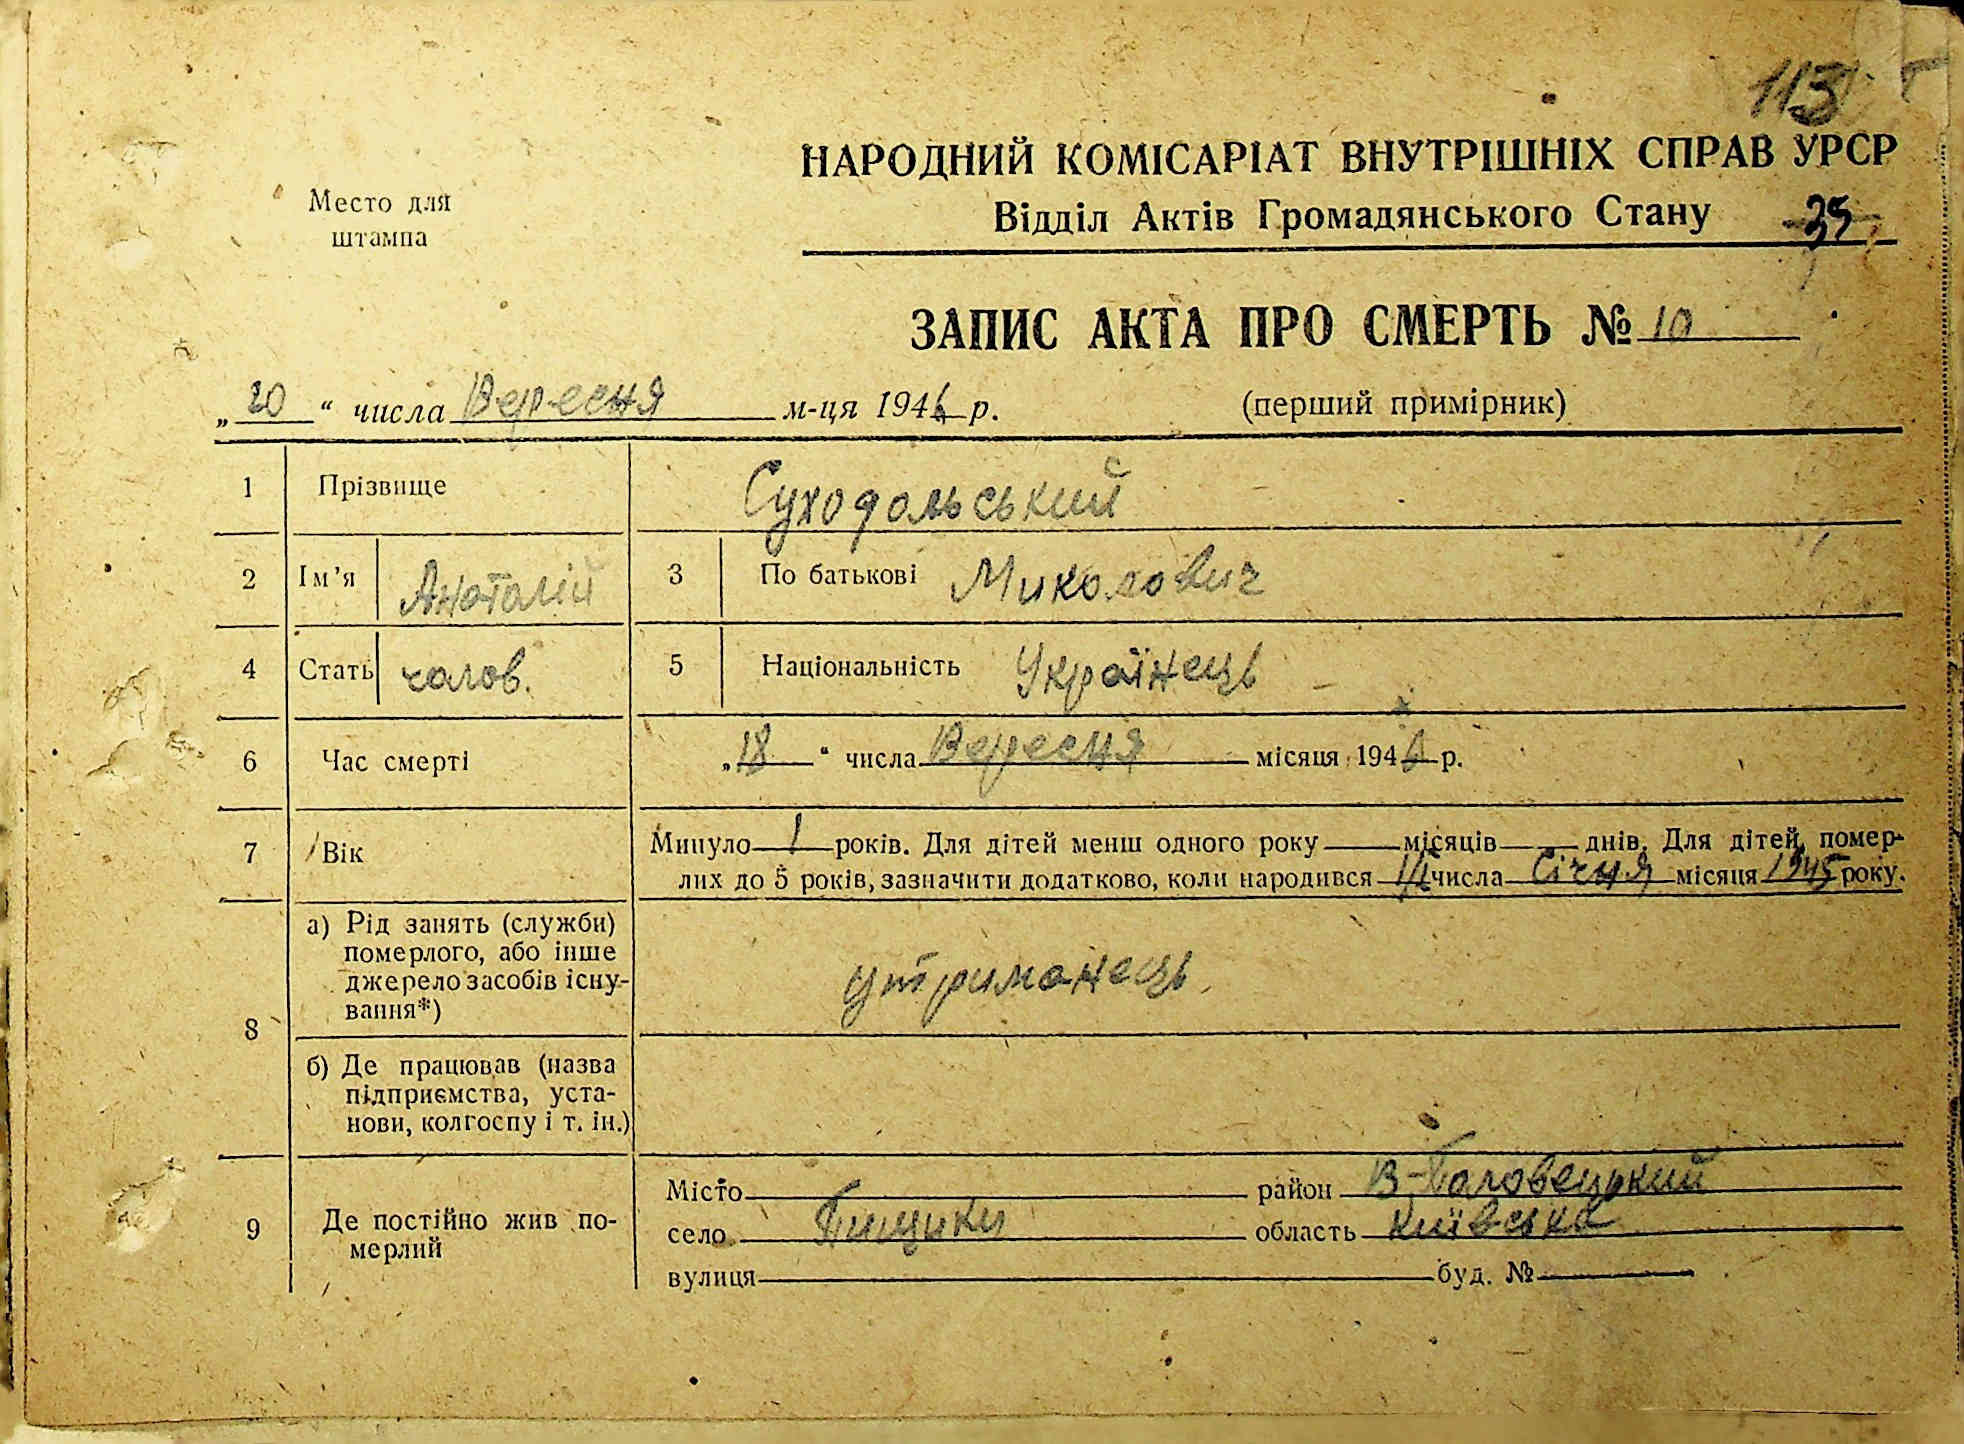 113
НАРОДНИЙ КОМІСАРІАТ ВНУТРІШНІХ СПРАВ УРСР
Место для
штампа
Відділ Актів Громадянського Стану 35
ЗАПИС АКТА ПРО СМЕРТЬ № 10
„20“ числа Вересня м-ця 1946 р. (перший примірник)
1 Прізвище Суходольський
2 Ім’я Анатолій 3 По батькові Миколович
4 Стать чолов. 5 Національність Українець
6 Час смерті „18“ числа Вересня місяця 1946 р.
7 Вік Минуло 1 років. Для дітей менш одного року місяців днів. Для дітей, помер-
лих до 5 років, зазначити додатково, коли народився числа Січня місяця 1945 року.
8 а) Рід занять (служби)
померлого, або інше
джерело засобів існу-
вання*) утриманець
б) Де працював (назва
підприємства, уста-
нови, колгоспу і т. ін.)
9 Де постійно жив по-
мерлий
Місто район В-Половецький
село Пищики область Київська
вулиця буд. №